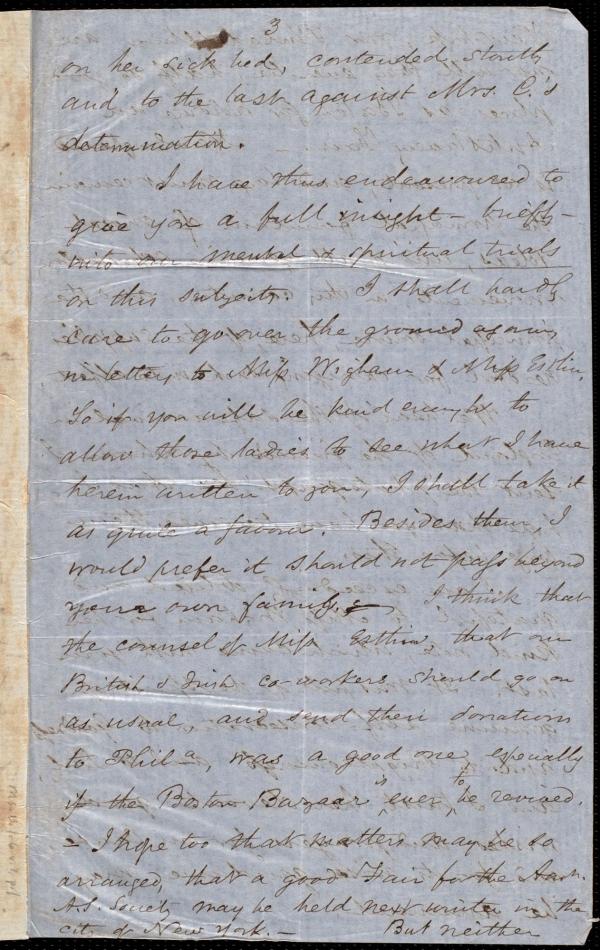 3
on her sick bed, contended stoutly
and to the last against Mrs. C.'s
determination.
I have thus endeavoured to
give you a full insight - briefly -
into our mental & spiritual trials
on this subject. I shall hardly
care to go over the ground again,
in letters to Miss Wigham & Miss Estlin,
So if you will be kind enough to
allow those ladies to see what I have
herein written to you, I shall take it
as quite a favor. Besides them, I
would prefer it should not pass beyond
your own family. - I think that
the counsel of Miss Estlin, that our
British & Irish co-workers should go on
as usual, and send their donations
to Phila, was a good one, especially
if the Boston Bazaar is ever to be revived.
- I hope too that matters may be so
arranged, that a good Fair for the Am.
A.S. Society may be held next winter in the
city of New York. - But neither